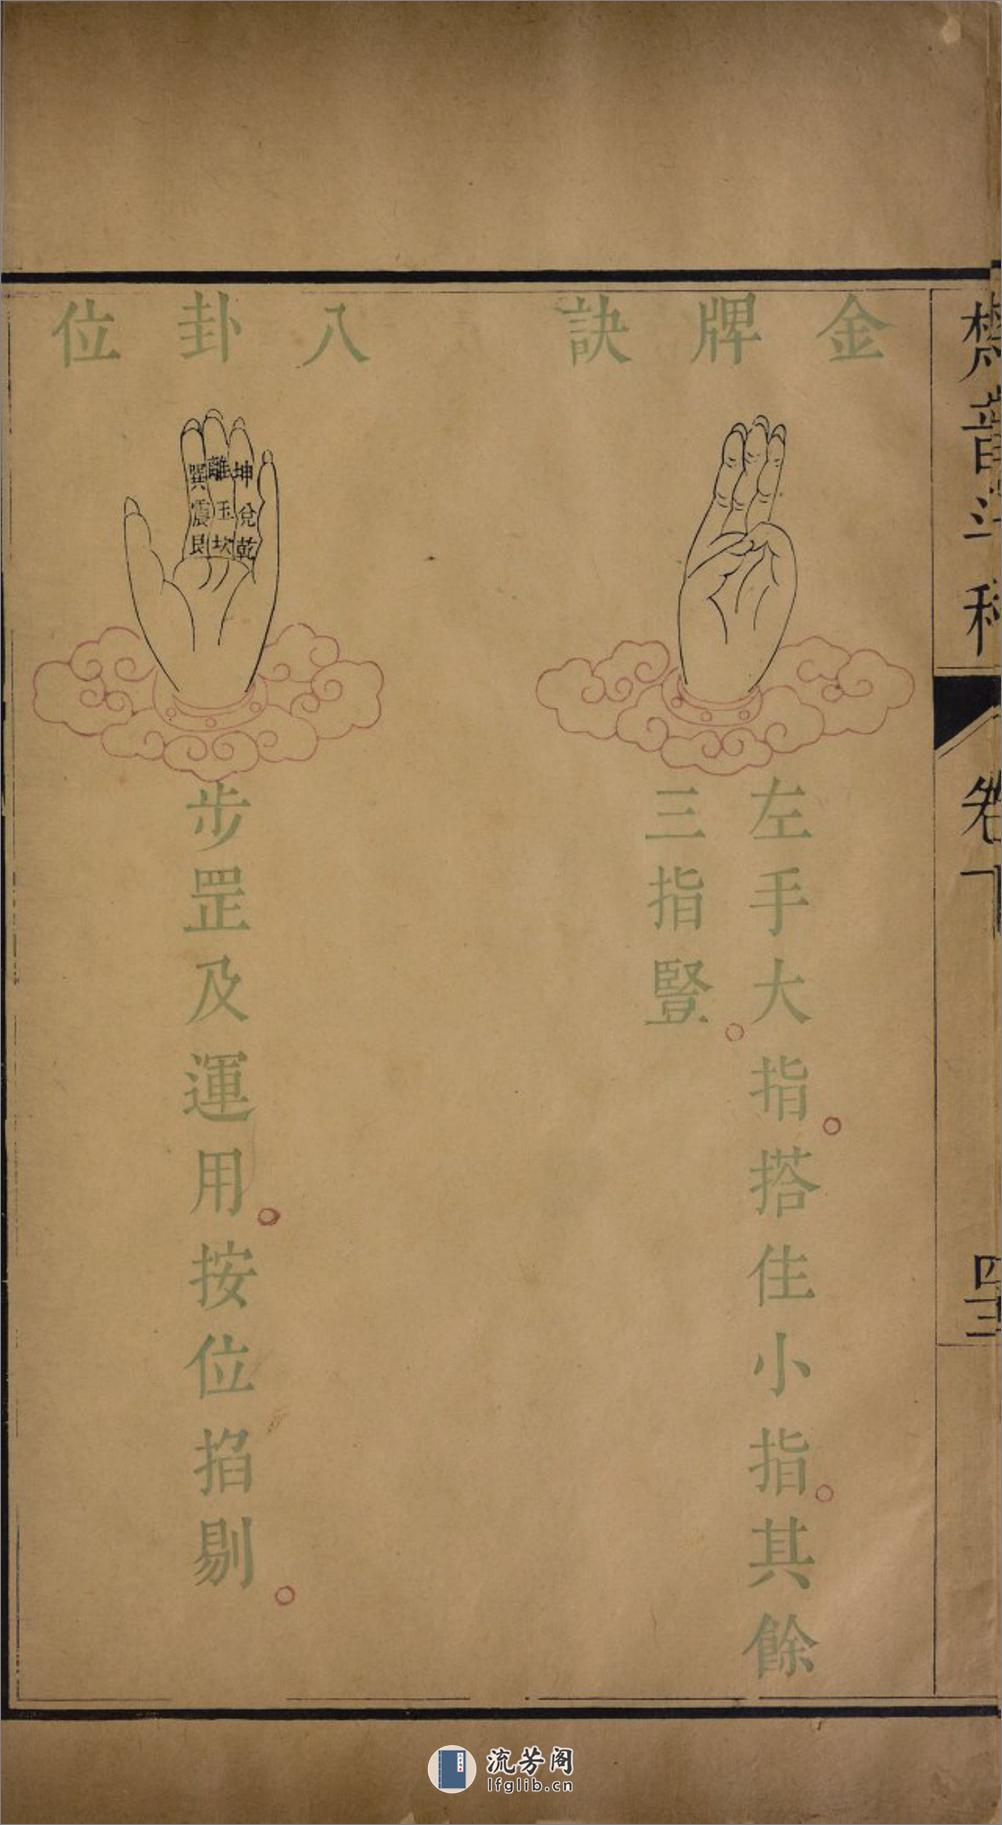 梵音斗科
卷下
四三
金牌訣
左手大指。搭住小指。其餘
三指豎。
八卦位
坤兌乾
離玉坎
巽震艮
步罡及運用。按位掐剔。
流芳阁
lfglib.cn